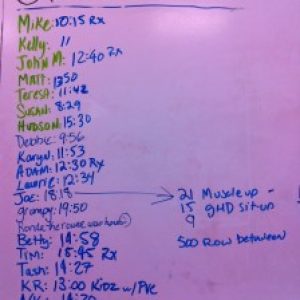 Mike: 10:15 Rx
Kelly: 11
John M: 12:40 Rx
Matt: 1350
Teresa: 11:42
Susan: 8:29
Hudson: 15:30
Debbie: 9:56
Karyn: 11:53
Adam: 12:30 Rx
Laurie: 12:34
Joe: 18:18
grampy: 19:50
Betty: 14:58
Tim: 15:45 Rx
Tash: 14:27
KR: 13:00 Kidz w/ PVC
21 Muscleup -
15 GHD situp
9
500 Row between